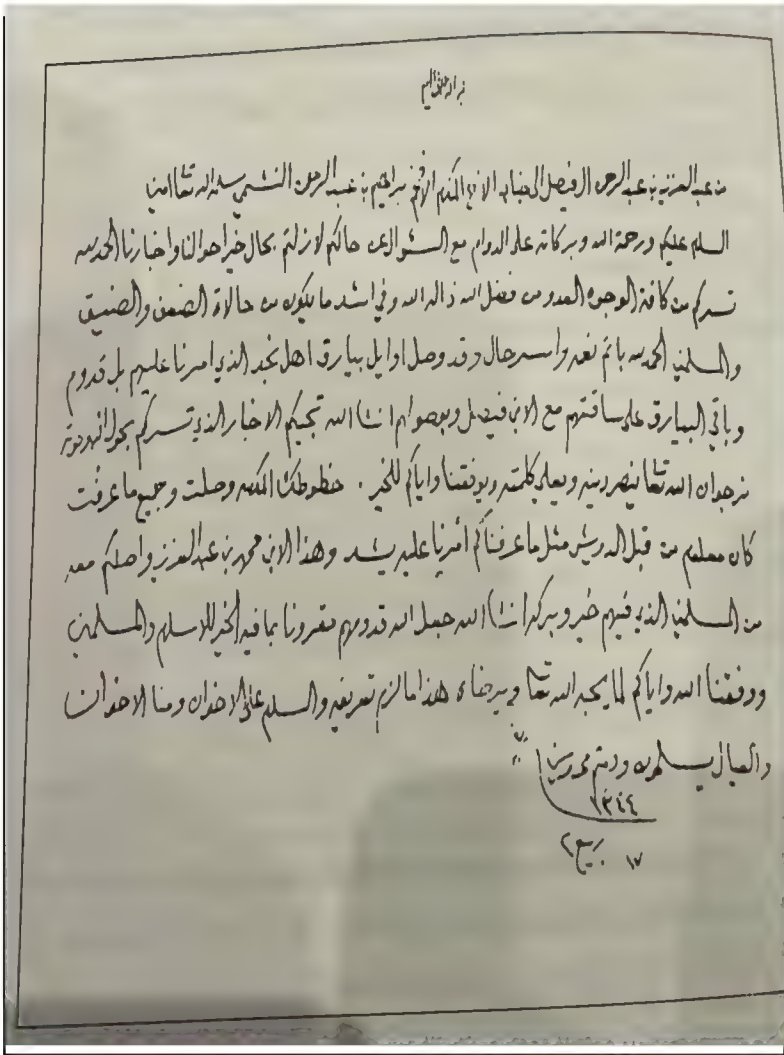 بسم الله الرحمن الرحيم
من عبد العزيز بن عبد الرحمن ال فيصل الى جناب الاخ المكرم الافخم براهيم بن عبد الرحمن النشمي سلمه الله تعالى امين
السلام عليكم ورحمة الله وبركاته على الدوام مع السؤال عن حالكم لازلتم بحال خير احوالنا واخبارنا الحمد لله
تسركم من كافة الوجوه العدو من فضل الله ذاله الله وفي اشد ما يكون من حالات الضعف والضيق
والمسلمين الحمد لله باتم نعمه واسر حال وقد وصل اوايل بيارق اهل نجد الذي امرنا عليهم بل قدوم
وباقي البيارق على ساقتهم مع الابن فيصل وبوصولهم انشا الله تجيكم الاخبار الذي تسركم بحول الله وقوته
نرجوا ان الله تعالى ينصر دينه ويعلي كلمته ويوفقنا واياكم للخير . خطوطك المكرمه وصلت وجميع ما عرفت
كان معلوم من قبل الدويش مثل ما عرفناكم أمرنا عليه يشد وهذا الابن محمد بن عبد العزيز واصلكم معه
من المسلمين الذي فيهم خير وبركه انشا الله جعل الله قدومهم مقرونا بما فيه الخير للاسلام والمسلمين
ووفقنا الله واياكم لما يحبه الله تعالى ويرضاه هذا مالزم تعريفه والسلام على الاخوان ومنا الاخوان
والعيال يسلمون ودمتم محروسين
١٣٤٤
١٧ ربيع ٢